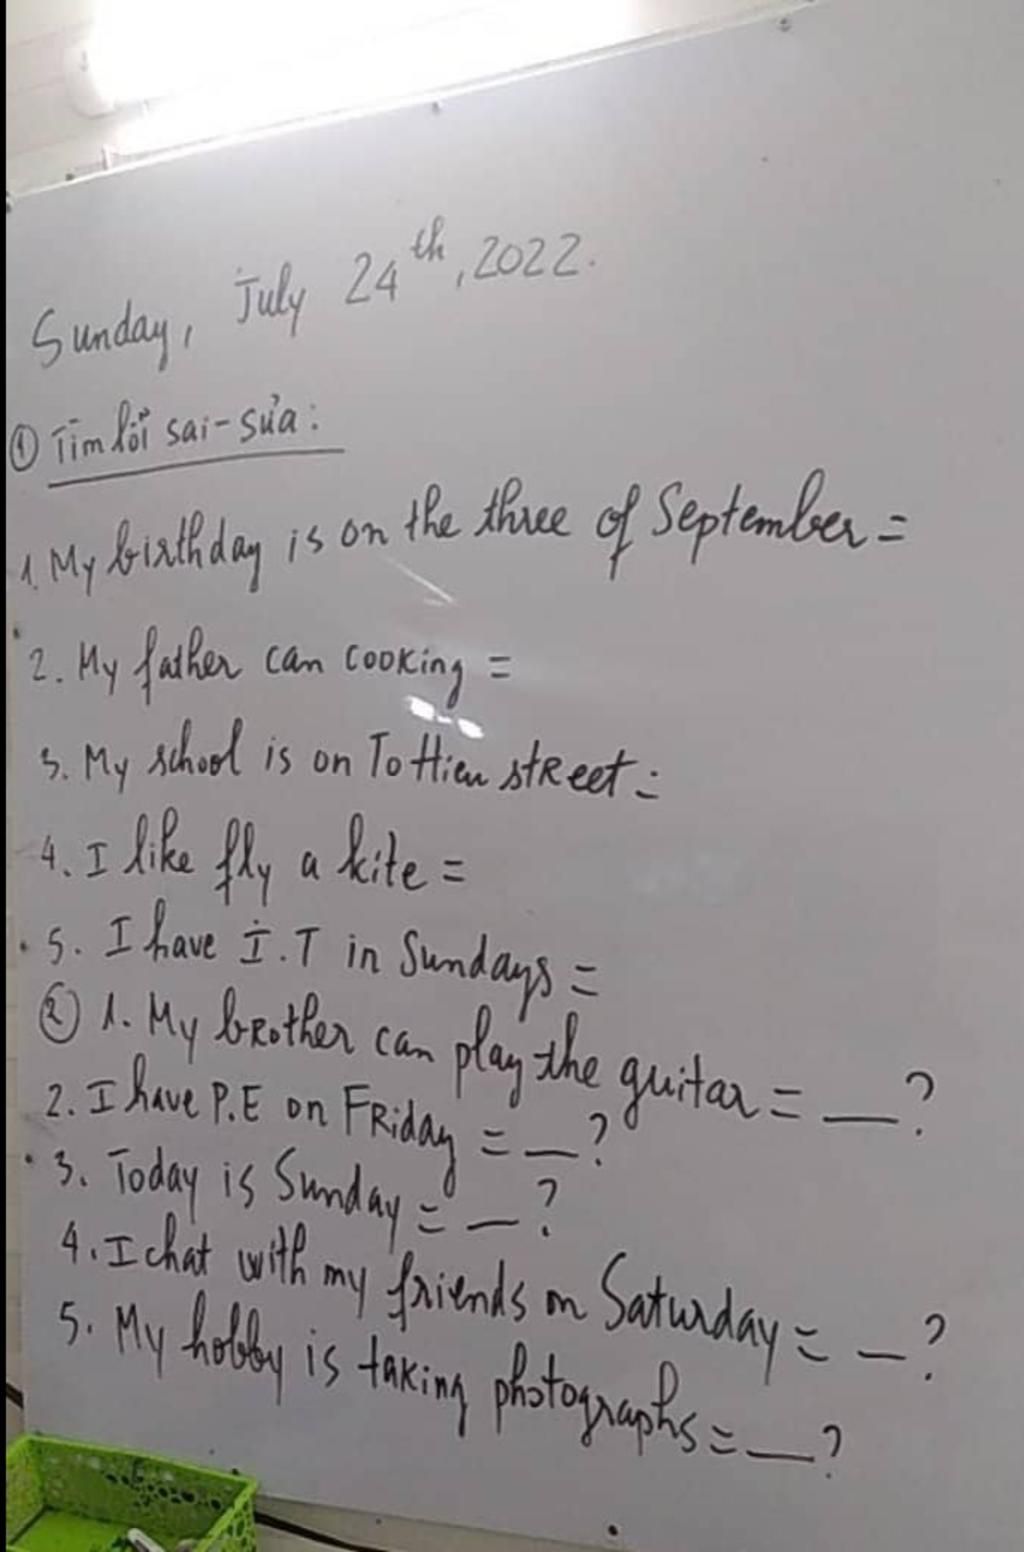 Sunday, July 24th, 2022.
① Tìm lỗi sai - sửa:
1. My birthday is on the three of September =
2. My father can cooking =
3. My school is on To Hieu street =
4. I like fly a kite =
5. I have I.T in Sundays =
② 1. My brother can play the guitar = __?
2. I have P.E on Friday = __?
3. Today is Sunday = __?
4. I chat with my friends on Saturday = __?
5. My hobby is taking photographs = __?